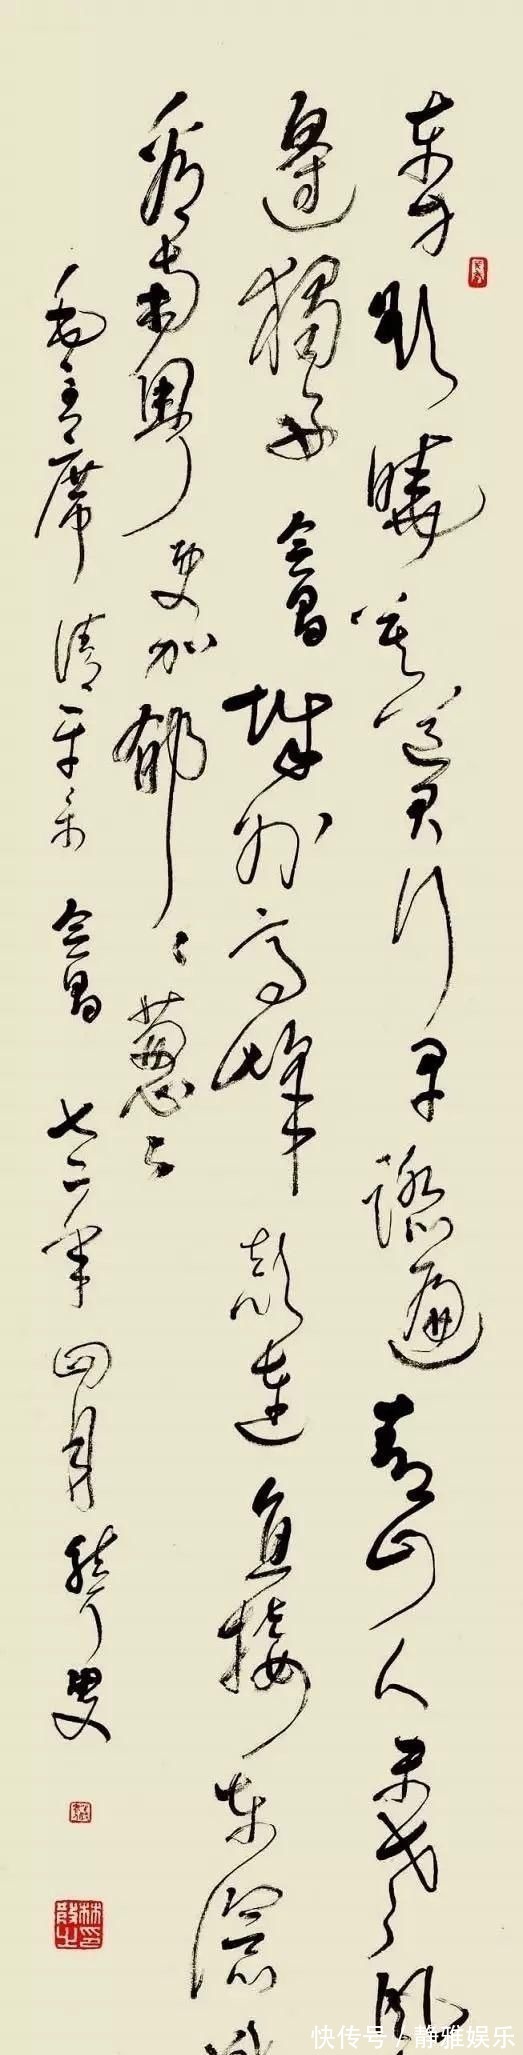 东方欲晓莫道君行早踏遍青山人未老风
边独好会昌城外高峰颠连直接东溟战
看南粤更加郁郁葱葱
毛主席清平乐会昌七二年四月聋叟
林散之印
快传号/静雅娱乐